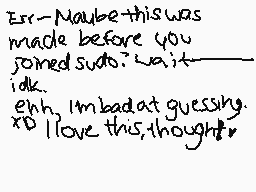 Err-Maybe this was
made before you
joined sudo? wait-
idk.
ehh, I'm bad at guessing.
xD I love this, though♥